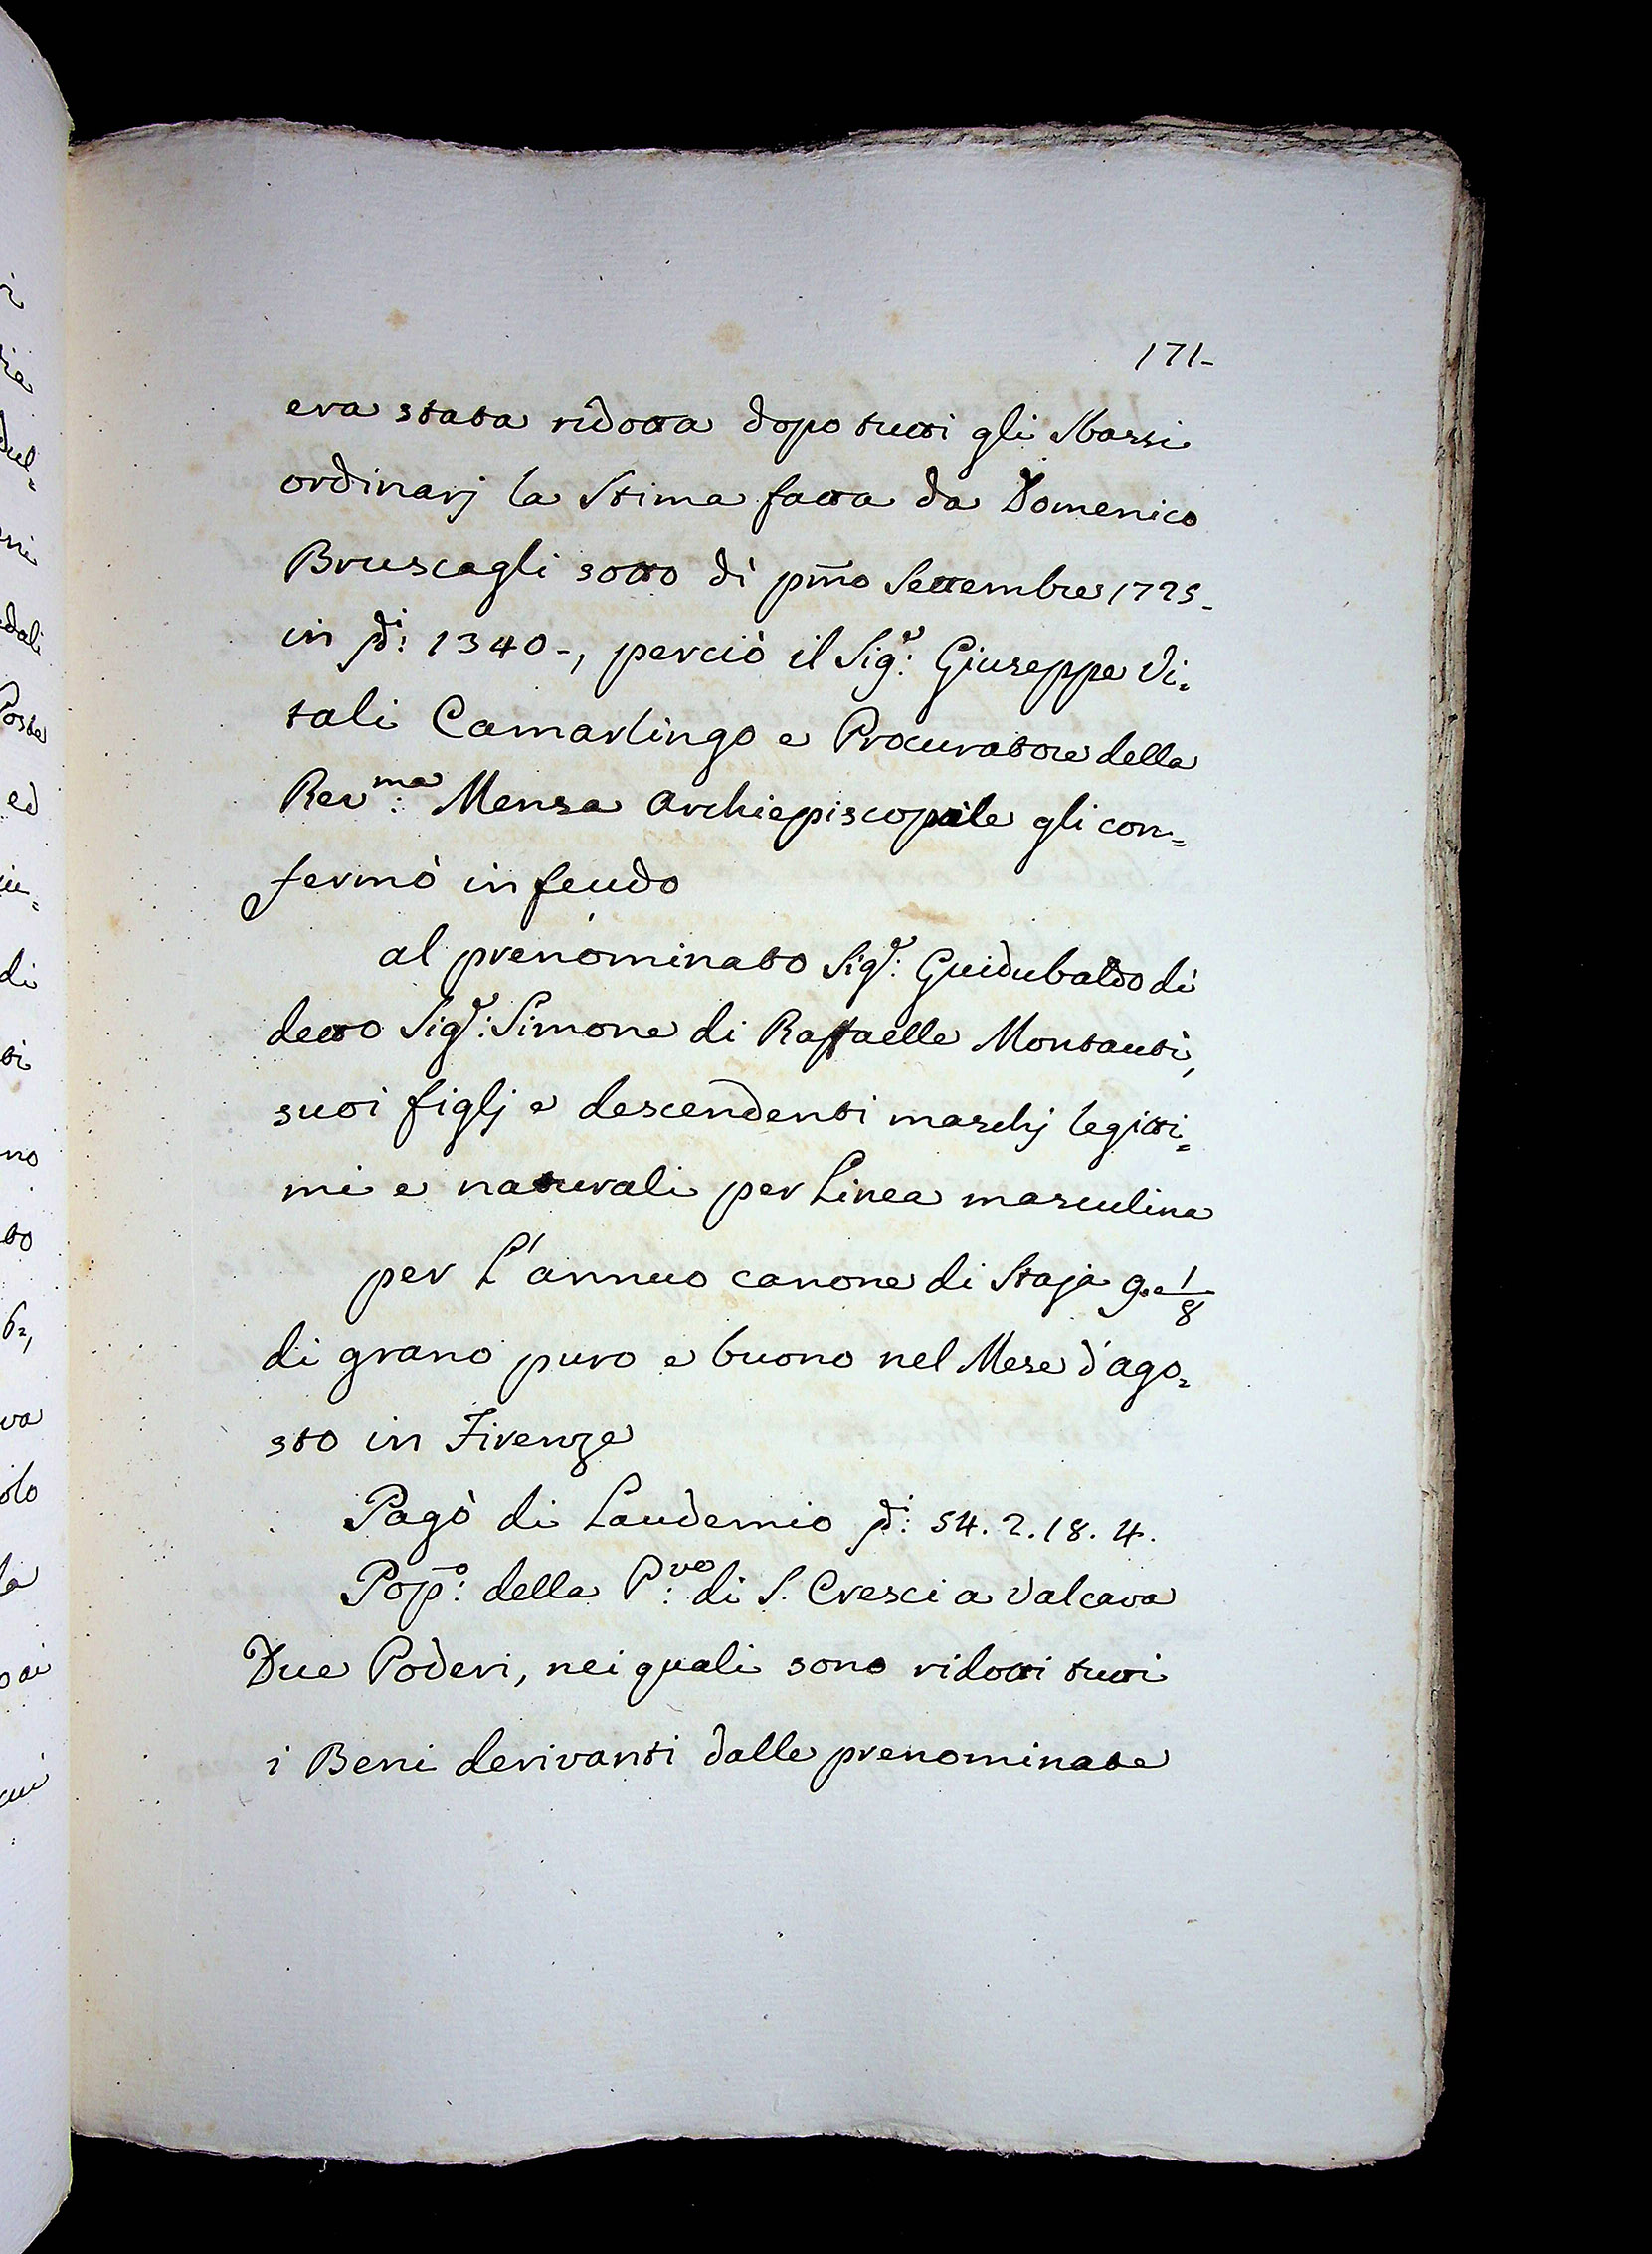 171-
era stata ridotta dopo tutti gli Sbassi
ordinarj la Stima fatta da Domenico
Bruscagli sotto dì pm̃o Settembre 1725-
in di: 1340-, perciò il Sigr: Giuseppe Vi=
tali Camarlingo e Procuratore della
Revma: Mensa Archiepiscopale gli con=
fermò in feudo
al prenominato Sigr: Guidubaldo di
detto Sigr: Simone di Raffaelle Montauti,
suoi figlj e descendenti maschj legitti=
mi e naturali per Linea masculina
per L'annuo canone di Staja 9. e 1/8
di grano puro e buono nel Mese d'ago=
sto in Firenze
Pagò di Laudemio di: 54. 2. 18. 4.
Popo: della Pve: di S. Cresci a Valcava
Due Poderi, nei quali sono ridotti tutti
i Beni derivanti dalle prenominate